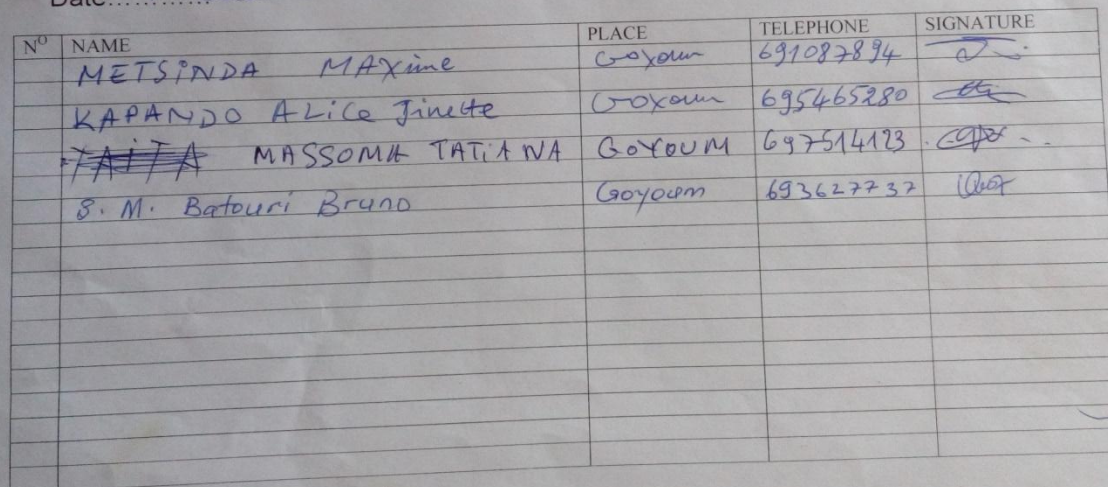 Date............
N° NAME PLACE TELEPHONE SIGNATURE
METSINDA MAXime Goyoum 691087894
KAPANDO ALice Jinette Goyoum 695465280
TAITA MASSOMA TATIANA GOYOUM 697514123
S. M. Batouri Bruno Goyoum 693627737